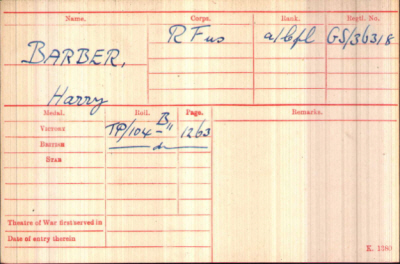 Name. Corps. Rank. Regtl. No.
BARBER, R Fus a/Cpl GS/36318
Harry
Medal. Roll. Page. Remarks.
VICTORY TP/104 B11 1263
BRITISH do
STAR
Theatre of War first served in
Date of entry therein
K. 1380